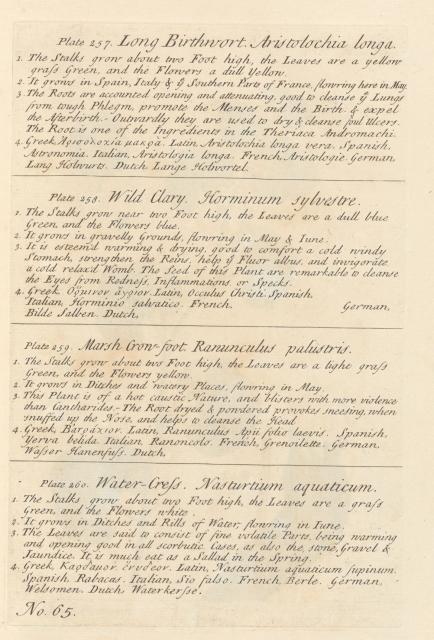 Plate 257. Long Birthwort. Aristolochia longa.
1. The Stalks grow about two Foot high, the Leaves are a yellow
graſs Green, and the Flowers a dull Yellow.
2. It grows in Spain, Italy & ÿ Southern Parts of France, flowring here in May.
3. The Roots are accounted opening and attenuating, good to cleanse ÿ Lungs
from tough Phlegm, promote the Menses and the Birth & expel
the Afterbirth.- Outwardly they are used to dry & cleanse foul Ulcers.
The Root is one of the Ingredients in the Theriaca Andromachi.
4. Greek, Αρισολοχία μακρα. Latin, Aristolochia longa vera. Spanish,
Astronomia. Italian, Aristologia longa. French, Aristologie. German,
Lang Holwurts. Dutch, Lange Holwortel.
Plate 258. Wild Clary. Horminum sylvestre.
1. The Stalks grow near two Foot high, the Leaves are a dull blue
Green, and the Flowers blue.
2. It grows in gravelly Grounds, flowring in May & Iune.
3. It is esteem'd warming & drying, good to comfort a cold windy
Stomach, strengthen the Reins, help ÿ Fluor albus, and invigorate
a cold relax'd Womb. The Seed of this Plant are remarkable to cleanse
the Eyes from Redneſs, Inflammations, or Specks.
4. Greek, Ορμινον αγριον. Latin, Occulus Christi. Spanish,
Italian, Horminio salvatico. French, German,
Bilde Salben. Dutch,
Plate 259. Marsh Crow-foot. Ranunculus palustris.
1. The Stalks grow about two Foot high, the Leaves are a light graſs
Green, and the Flowers yellow.
2. It grows in Ditches and watery Places, flowring in May.
3. This Plant is of a hot caustic Nature, and blisters with more violence
than Cantharides.- The Root dryed & powdered provokes sneesing, when
snuffed up the Nose, and helps to cleanse the Head.
4. Greek, Βατραχιον. Latin, Ranunculus Apii folio laevis. Spanish,
Yerva belida. Italian, Ranoncolo. French, Grenoilette. German,
Waſser Hanenfuſs. Dutch,
Plate 260. Water-Creſs. Nasturtium aquaticum.
1. The Stalks grow about two Foot high, the Leaves are a graſs
Green, and the Flowers white.
2. It grows in Ditches and Rills of Water, flowring in Iune.
3. The Leaves are said to consist of fine volatile Parts, being warming
and opening, good in all scorbutic Cases, as also the stone, Gravel &
Jaundice. It is much eat as a Sallad in the Spring.
4. Greek, Καρδαμον Latin, Nasturtium aquaticum supinum.
Spanish, Rabacas. Italian, Sio falso. French, Berle. German,
Welsomen. Dutch, Waterkerſse.
No. 65.